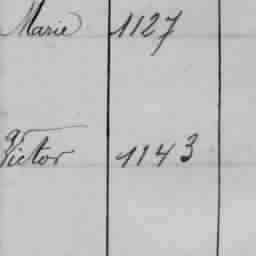 Marie 1127
Victor 1143